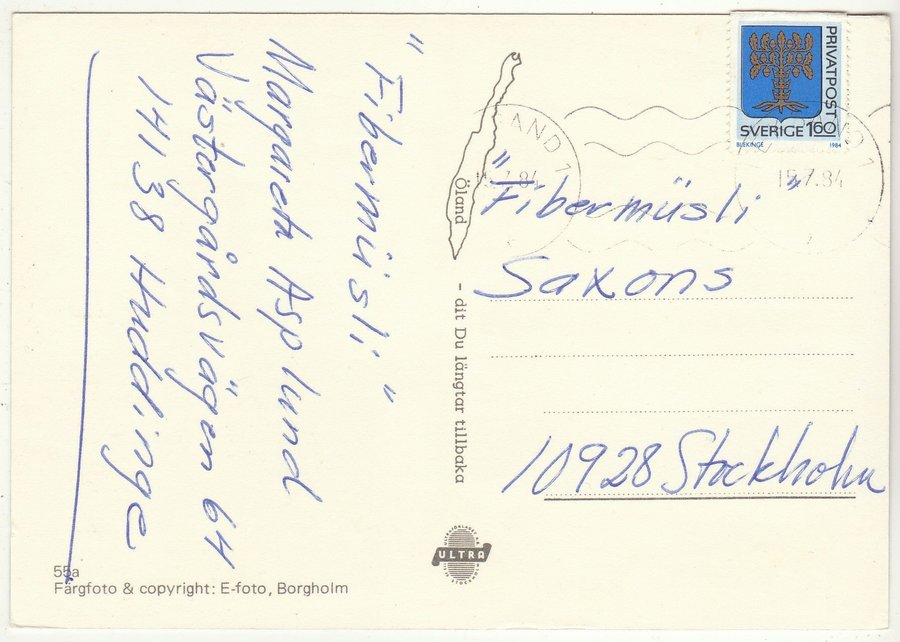 "Fibermüsli"
Margareta Asplund
Västergårdsvägen 64
14138 Huddinge
Öland
- dit Du längtar tillbaka
PRIVATPOST
SVERIGE 160
BLEKINGE 1984
AND 1
15.7.84
15.7.84
"Fibermüsli"
Saxons
10928 Stockholm
ULTRA
55a
Färgfoto & copyright: E-foto, Borgholm